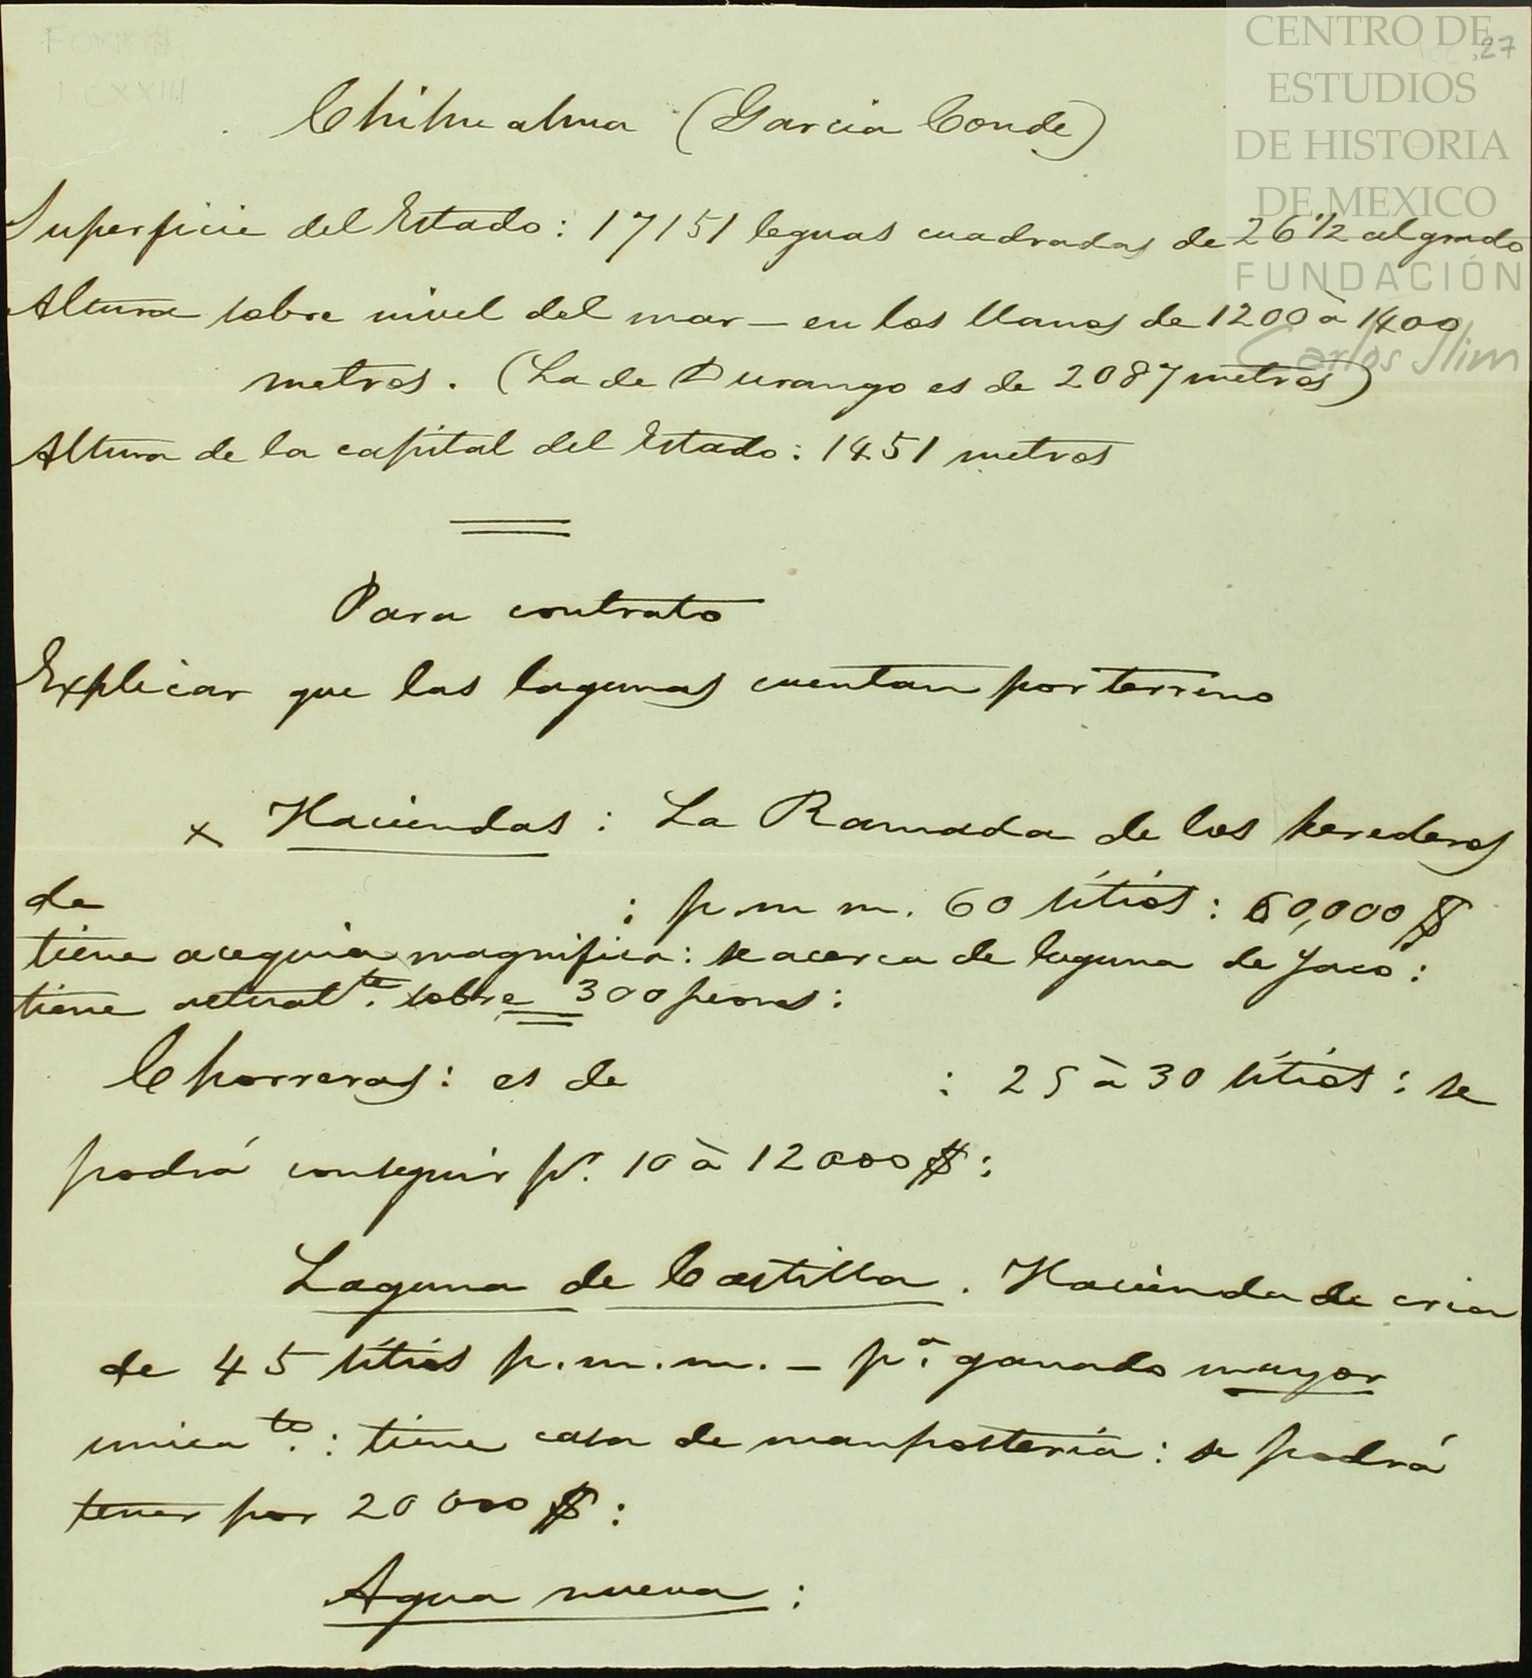 CENTRO DE
ESTUDIOS
DE HISTORIA
DE MEXICO
FUNDACIÓN
Carlos Slim
27
Chihuahua (Garcia Conde)
Superficie del Estado: 17151 leguas cuadradas de 26 1/2 al grado
Altura sobre nivel del mar — en los llanos de 1200 à 1400
metros. (La de Durango es de 2087 metros)
Altura de la capital del Estado: 1451 metros
Para contrato
Explicar que las lagunas cuentan por terreno
x Haciendas: La Ramada de los herederos
de : p. m m. 60 sítiós: 60,000 $
tiene acequia magnifica: se acerca de laguna de Jaco:
tiene actualte. sobre 300 peones:
Chorreras: es de : 25 à 30 sítiós: se
podrá conseguir pr. 10 à 12000 $:
Laguna de Castilla. Hacienda de cria
de 45 sítiós p. m. m. — pa. ganado mayor
unicate.: tiene casa de manposteria: se podrá
tener por 20 000 $:
Agua nueva: